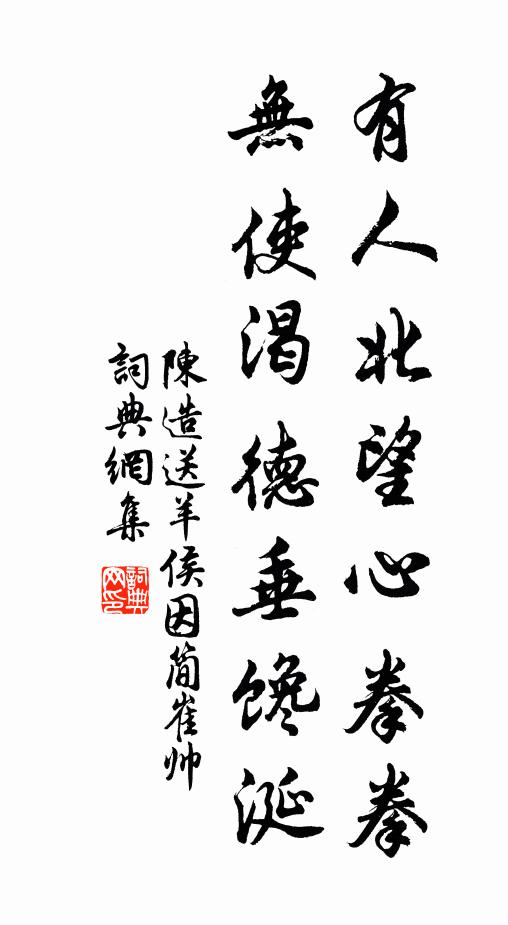 有人北望心拳拳
無使渴德垂馋涎
陳造送羊侯因简崔帅
詞典網集
詞典網印